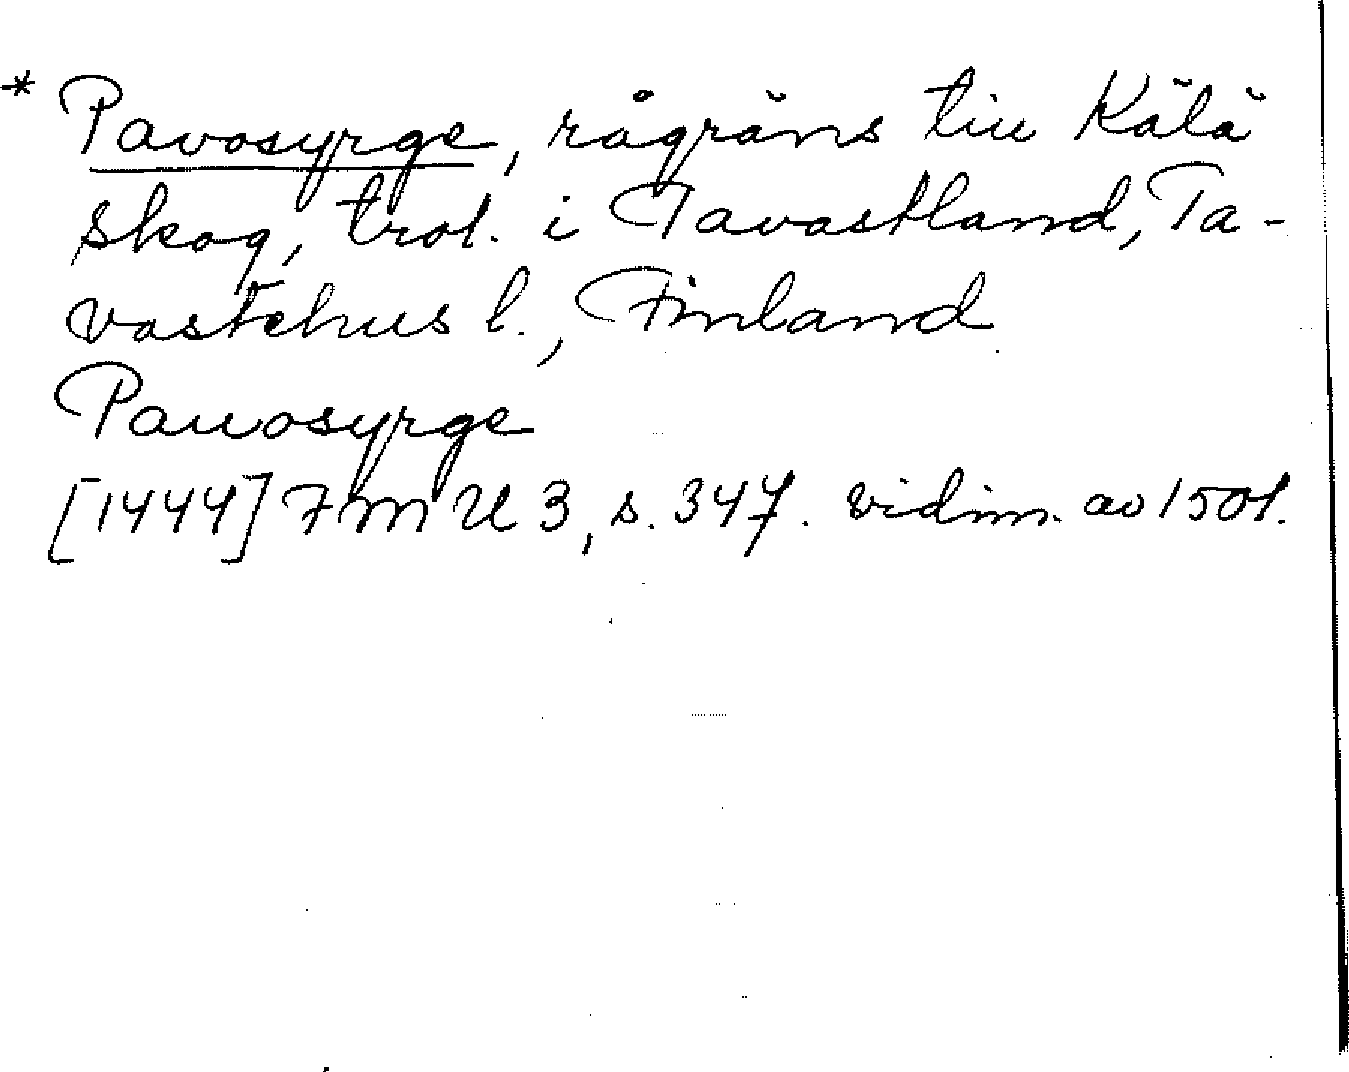 * Pavosyrge, rågräns till Kälä
skog, trol. i Tavastland, Ta-
vastehus l., Finland
Pauosyrge
[1444] FMU 3, s. 347. vidim. av 1501.